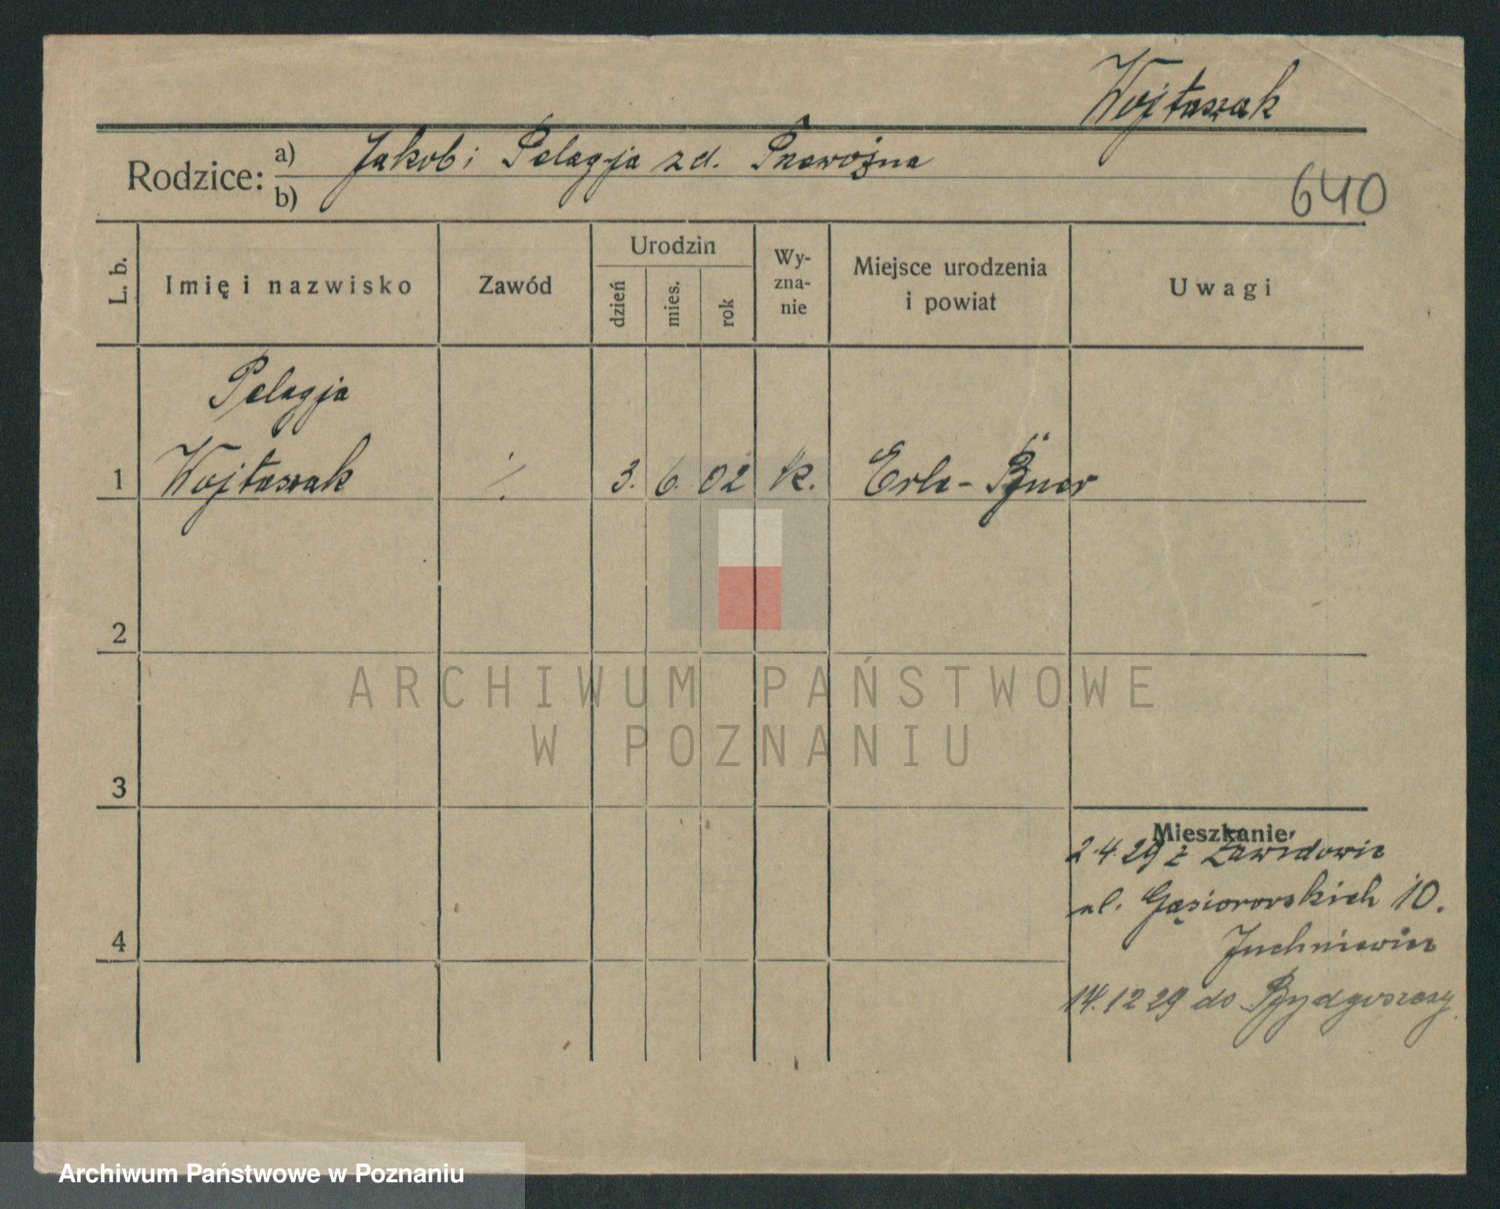 Wojtaszak
Rodzice: a) Jakob i Pelagja zd. Przewoźna
b)
640
L. b. Imię i nazwisko Zawód Urodzin dzień mies. rok Wy-zna-nie Miejsce urodzenia i powiat Uwagi
Pelagja
1 Wojtaszak ./. 3. 6. 02 k. Erle-
2
3
4
Mieszkanie
2.4.29 z Zawidowic
ul. Gąsiorowskich 10.
Juchniewicz
14.12 29 do Bydgoszczy
ARCHIWUM PAŃSTWOWE
W POZNANIU
Archiwum Państwowe w Poznaniu